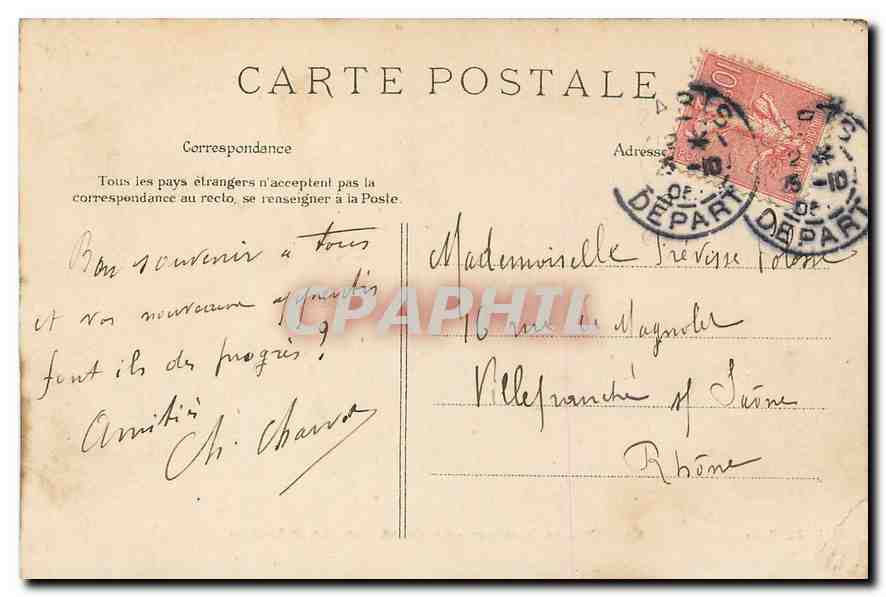 CARTE POSTALE
Correspondance
Adresse
Tous les pays étrangers n'acceptent pas la
correspondance au recto, se renseigner à la Poste.
10
DEPART
DEPART
Bon souvenir à tous
et vos nouveaux apprentis
font ils des progrès?
Amitiés
Ch.
Mademoiselle
16 rue de Magnolet
Villefranche s/ Saône
Rhône
CPAPHIL